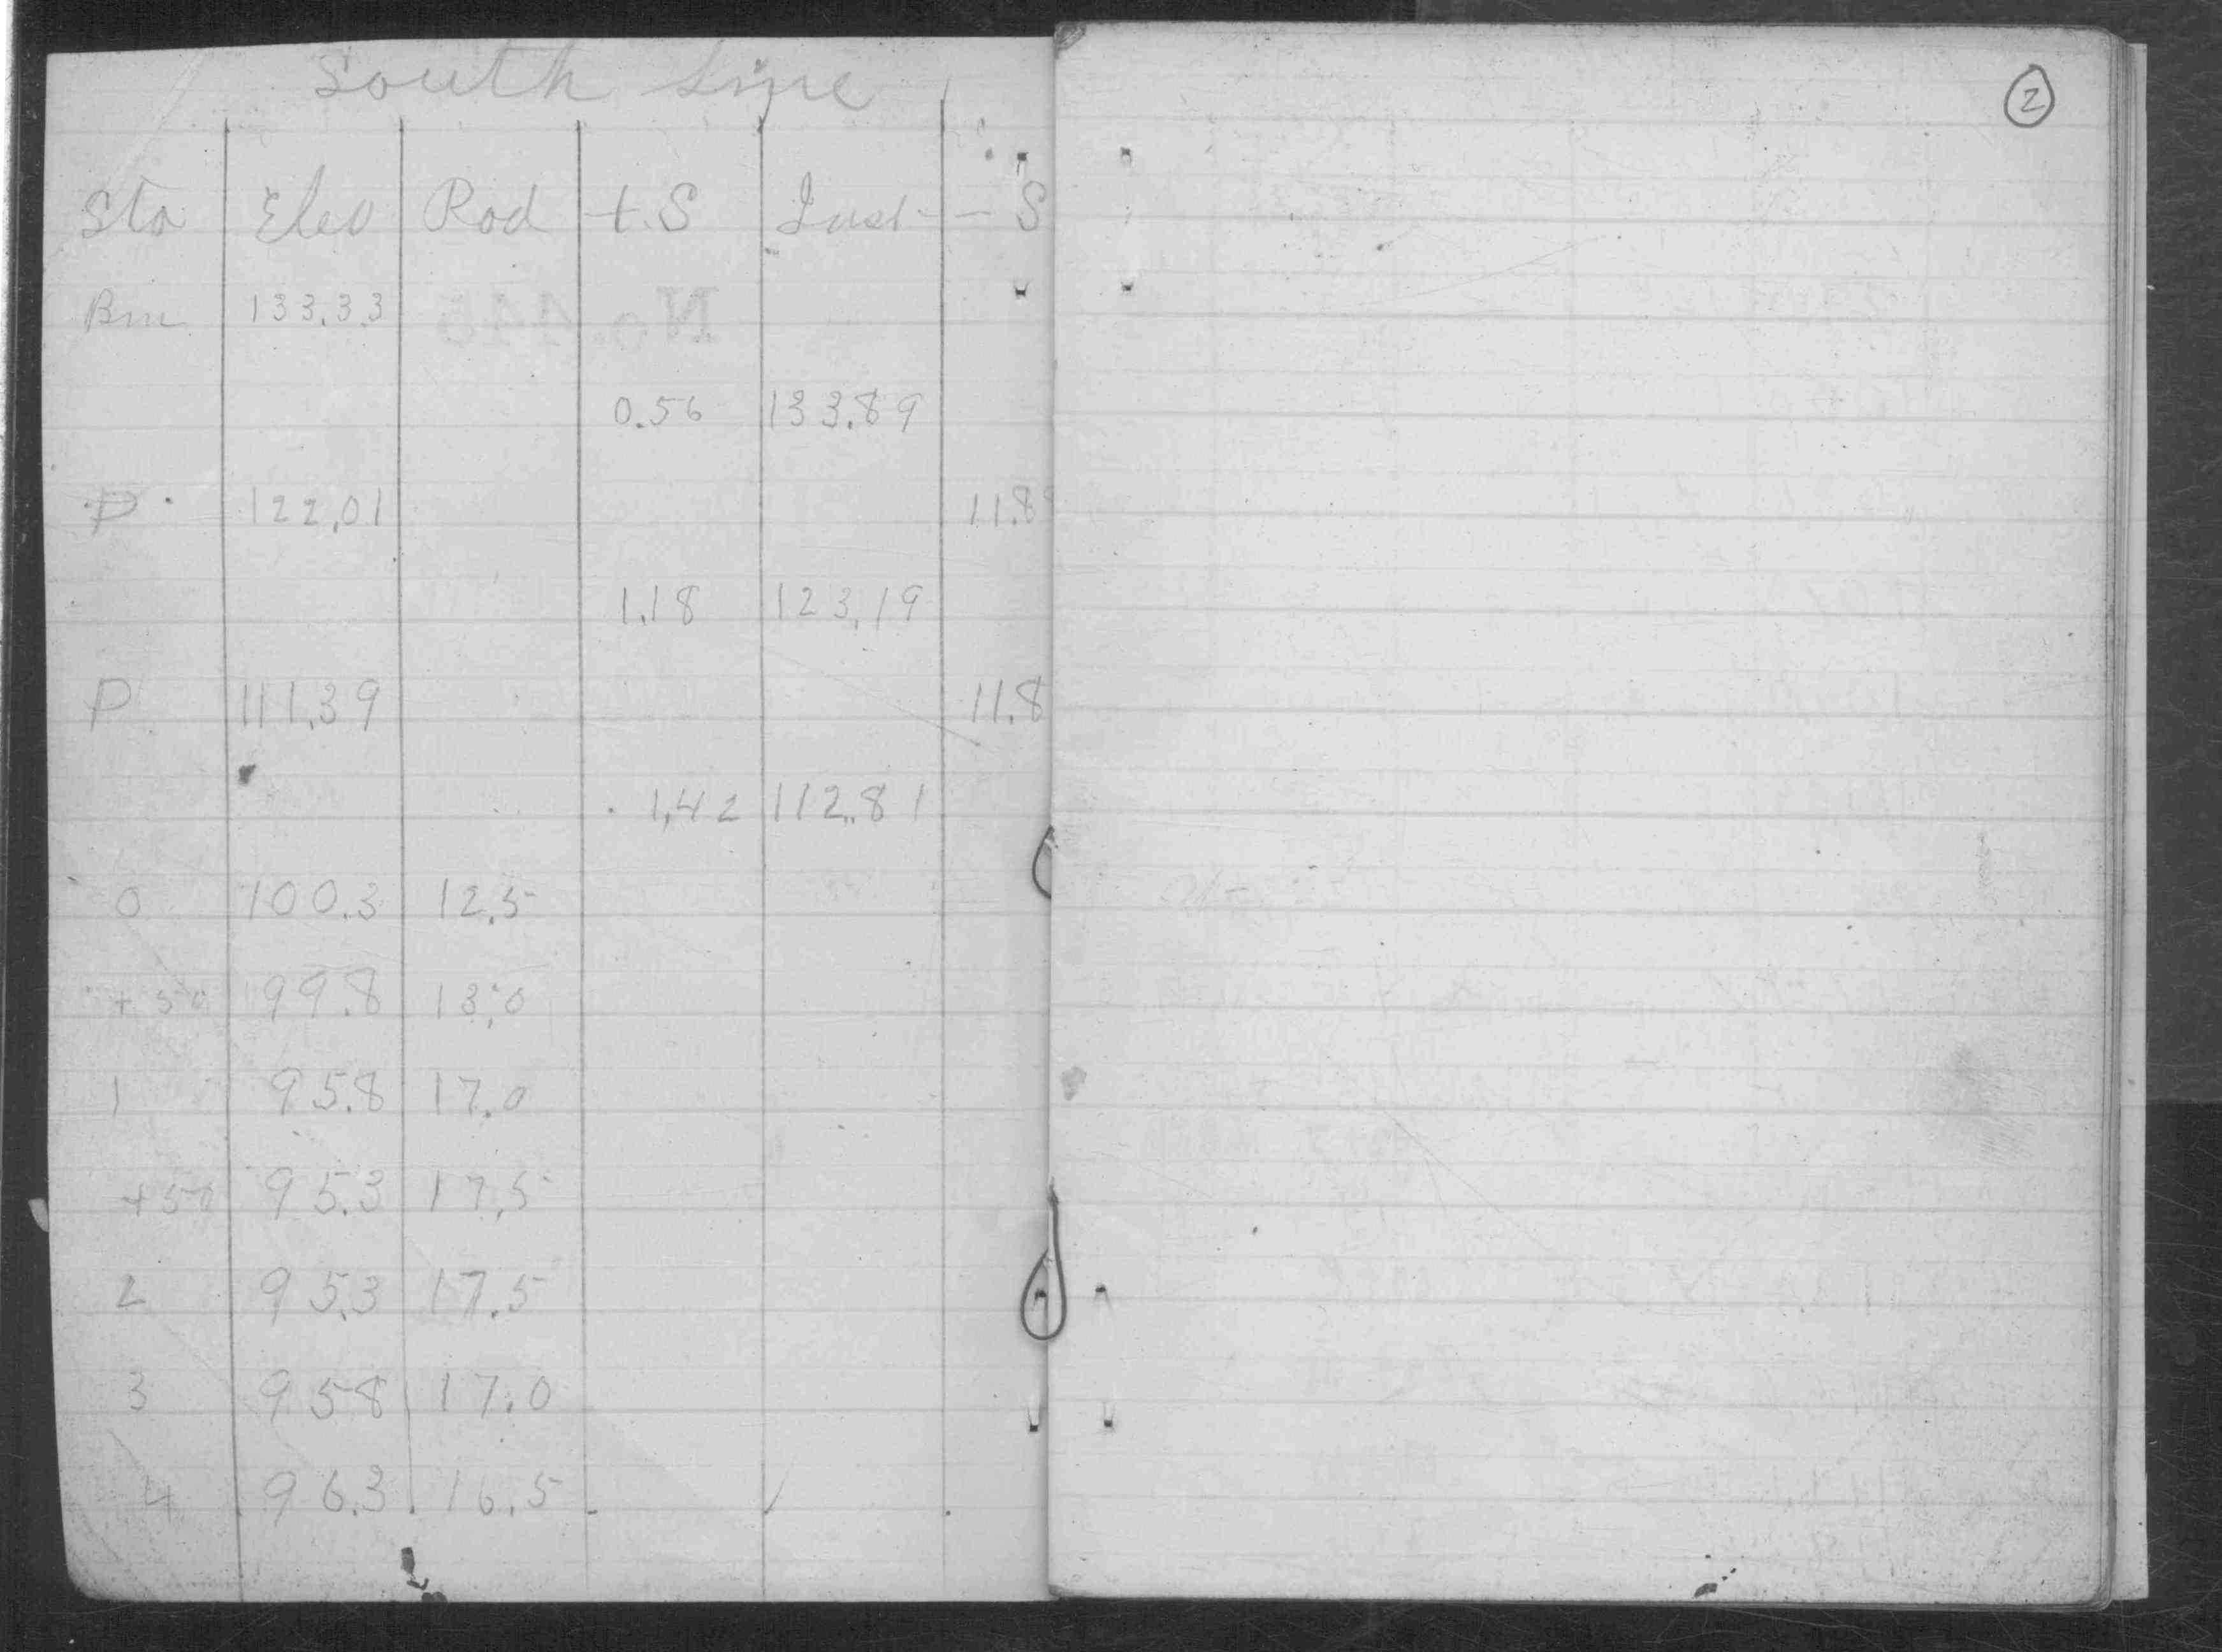 South Line
Sta Elev Rod +S Inst - S
Bm 133.33
0.56 133.89
P 122.01 11.8
1.18 123.19
P 111.39 11.8
1.42 112.81
0 100.3 12.5
+50 99.8 13.0
1 95.8 17.0
+50 95.3 17.5
2 95.3 17.5
3 95.8 17.0
4 96.3 16.5
No. 445
2